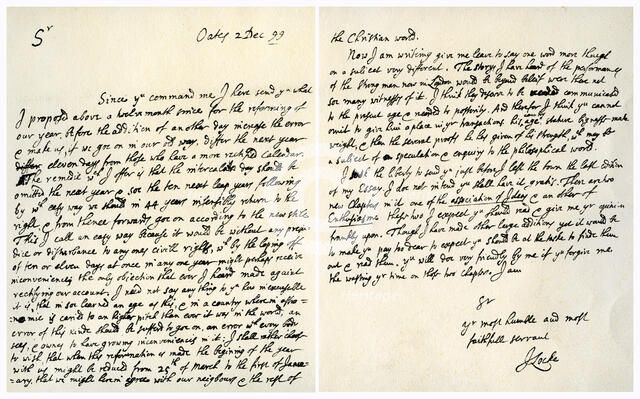 Oates 2 Dec 99
Sr
Since yu command me I here send yu what
I proposed above a twelvemonth since for the reforming of
our year, before the addition of another day increase the error
& make us, if we goe on in our old way, differ the next year
eleven days from those who have a more rectified Calendar.
The remedie wch I offer is that the intercalar day should be
omitted the next year & soe the ten next leap years following
by wch easy way we should in 44 years insensibly return to the
right & from thence forwards goe on according to the new stile
This I call an easy way because it would be without any preju-
dice or disturbance to any ones civill rights, wch by the loping off
of ten or eleven days at once in any one year might perhaps receive
inconvenience, the only objection that ever I heard made against
rectifying our account. I need not say any thing to yu how inexcusable
it is that in soe learned an age as this & in a country wherein
is caried to an higher pitch than ever it was in the world, an
error of this kinde should be suffered to goe on, an error wch every body
sees, & ownes to have growing inconveniences in it; I shall rather choose
to wish that when this reformation is made the begining of the year
with us might be reduced from 25th of March to the first of Janu-
ary, that we might herein agree with our neighbours & the rest of
the Christian world.
Now I am writing give me leave to say one word more though
on a subject very different. The storys I have heard of the performances
of the strong man now in London would be beyond beleif were there not
soe many witnesses of it. I think they deserve to be communicated
to the present age & recorded to posterity. And therefor I think you cannot
omit to give him a place in yr transactions his age stature
weight, & then the severall proofs he has given of his strength, wch may be
a subject of speculation & enquiry to the philosophical world.
I took the liberty to send yu just before I left the town the last edition
of my Essay. I doe not intend yu shall have it gratis. There are two
new chapters in it one of the association of Ideas & an other of
Enthusiasme these two I expect yu should read & give me yr opinion
frankly upon. Though I have made other large additions yet it would be
to make yu pay too dear to expect yu should be at the taske to finde them
out & read them. yu will doe very friendly by me if yu forgive me
the wasting yr time on those two chapters. I am
Sr
yr most humble and most
faithfull servant
J Locke